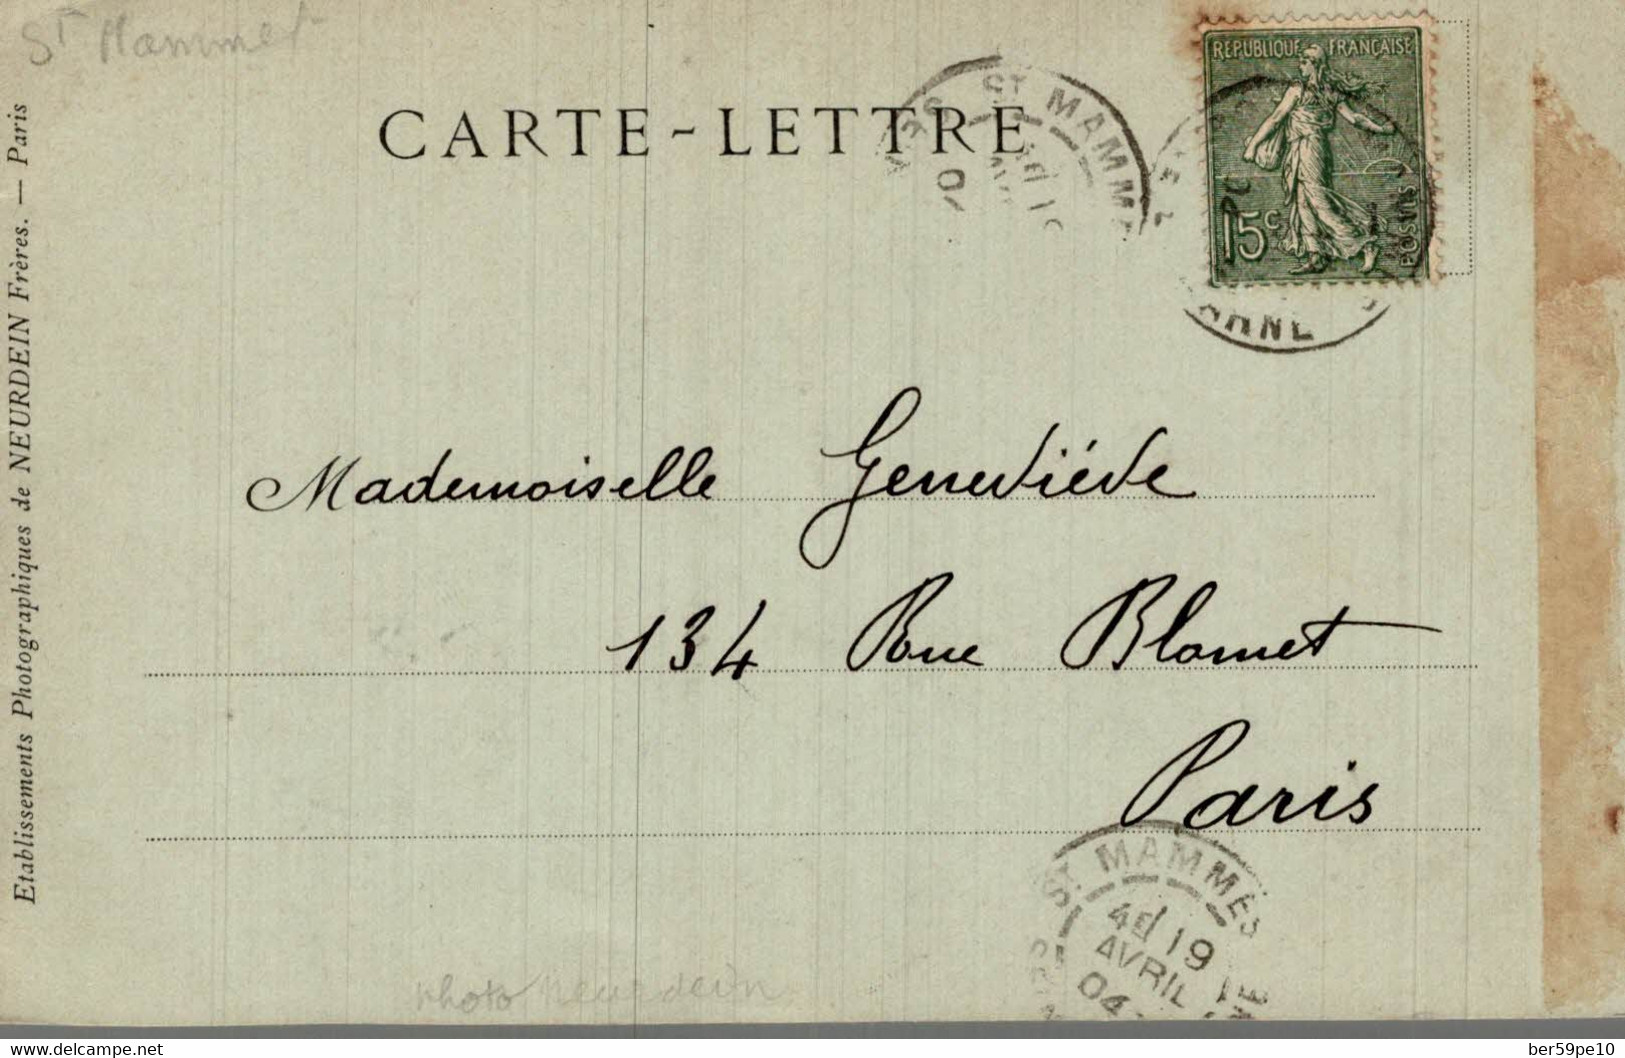 St Mammet
CARTE-LETTRE
REPUBLIQUE FRANÇAISE
15c
POSTES
ST MAMMÈ
ARNE
Mademoiselle Geneviève
134 Rue Blomet
Paris
ST MAMMÈS
4E 19
AVRIL
04
photo neurdein
Etablissements Photographiques de NEURDEIN Frères. — Paris
delcampe.net
ber59pe10